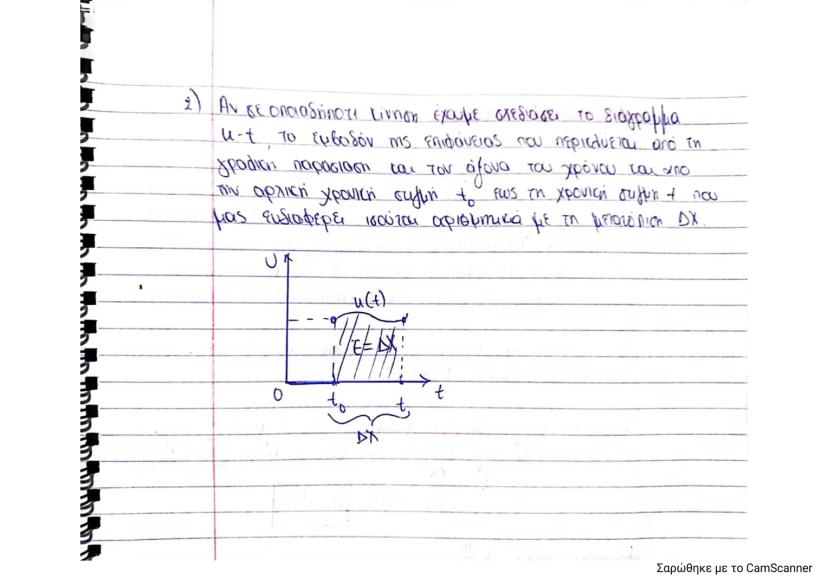 2) Αν σε οποιαδήποτε κίνηση έχουμε σχεδιάσει το διάγραμμα
u-t, το εμβαδόν της επιφάνειας που περικλύεται από τη
γραφική παράσταση και τον άξονα του χρόνου και από
την αρχική χρονική στιγμή t₀ εως τη χρονική στιγμή t που
μας ενδιαφέρει ισούται αριθμητικά με τη μετατόπιση Δx.
U
u(t)
E = Δx
0
t₀ t t
Δx
Σαρώθηκε με το CamScanner